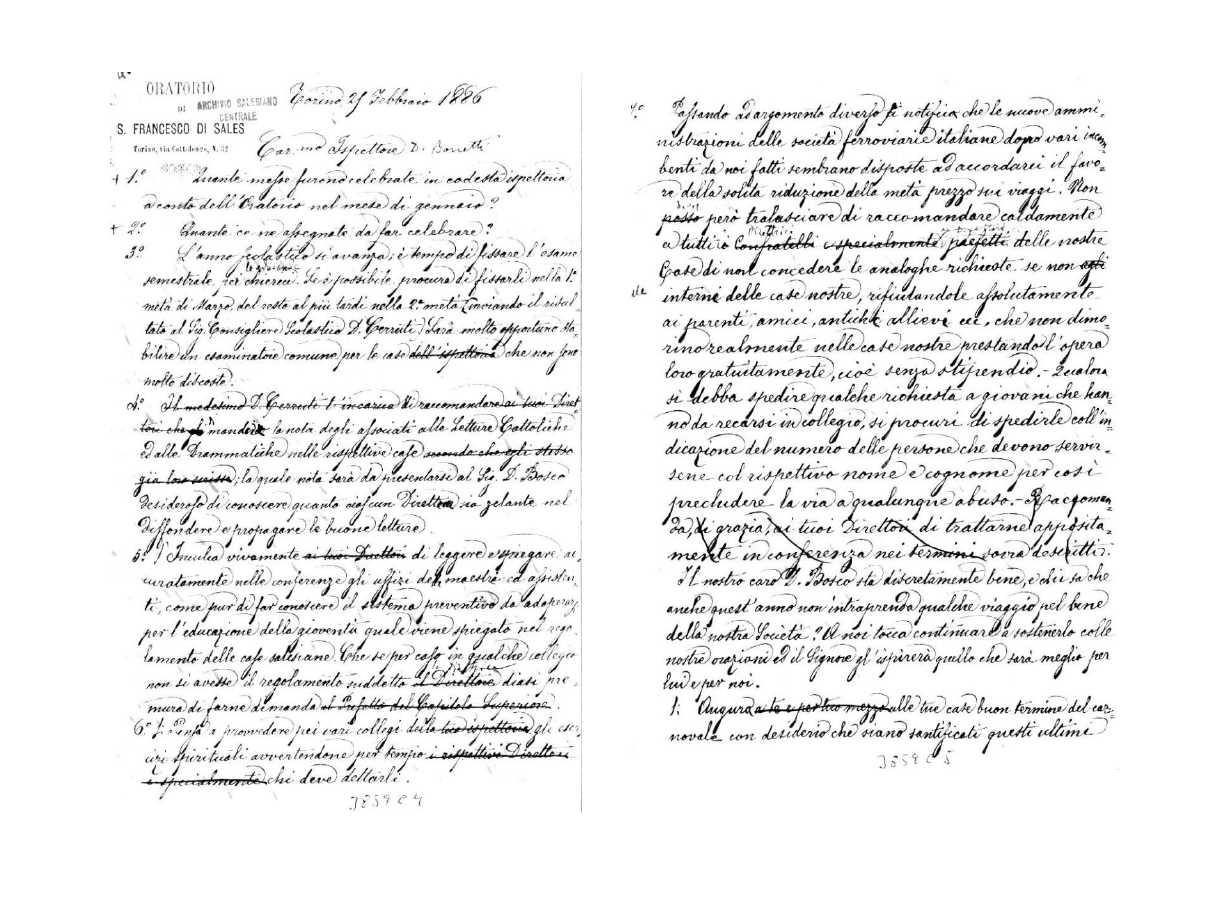 ORATORIO
DI
ARCHIVIO SALESIANO
CENTRALE
S. FRANCESCO DI SALES
Torino, via Cottolengo, N. 32
Torino, 25 Febbraio 1886
Car.mo Ispettore D. Bonetti
+ 1.° Quante messe furono celebrate in codesta ispettoria
a conto dell'Oratorio nel mese di gennaio?
+ 2.° Quante ce ne assegnate da far celebrare?
3.° L'anno scolastico si avanza; è tempo di fissare l'esame
semestrale, pei chierici. Se è possibile procura di fissarli nella 1.ª
metà di Marzo, del resto al più tardi nella 2.ª metà (inviando il risul
tato al Sig. Consigliere Scolastico D. Cerruti) Sarà molto opportuno sta
bilire un esaminatore comune per le case dell'ispettoria che non sono
molto discoste.
4.° Il medesimo D. Cerruti t'incarica di raccomandare ai tuoi Diret
tori che gli mandin la nota degli associati alle Letture Cattoliche
ed alle Drammatiche nelle rispettive case secondo che egli stesso
già loro scrisse; la quale nota sarà da presentarsi al Sig. D. Bosco
desideroso di conoscere quanto ciascun Direttore sia zelante nel
diffondere e propagare le buone letture.
5.° Inculca vivamente ai tuoi Direttori di leggere e spiegare ac
curatamente nelle conferenze gli uffizi dei maestri ed assisten
ti, come pur di far conoscere il sistema preventivo da adoperarsi
per l'educazione della gioventù quale viene spiegato nel rego
lamento delle case salesiane. Che se per caso in qualche collegio
non si avesse il regolamento suddetto il Direttore diasi pre=
mura di farne dimanda al Prefetto del Capitolo Superiore.
6.° Pensa a provvedere pei vari collegi della tua ispettoria gli eser
cizi spirituali avvertendone per tempo i rispettivi Direttori
e specialmente chi deve dettarli.
3859 C 4
7.° Passando ad argomento diverso si notifica che le nuove ammi=
nistrazioni delle società ferroviarie italiane dopo vari incom=
benti da noi fatti sembrano disposte ad accordarci il favo=
re della solita riduzione della metà prezzo sui viaggi. Non
posso però tralasciare di raccomandare caldamente
a tutti i Confratelli e specialmente prefetti delle nostre
Case di non concedere le analoghe richieste se non agli
interni delle case nostre, rifiutandole assolutamente
ai parenti, amici, antichi allievi ecc, che non dimo=
rino realmente nelle case nostre prestando l'opera
loro gratuitamente, cioè senza stipendio. - Qualora
si debba spedire qualche richiesta a giovani che han=
no da recarsi in collegio, si procuri di spedirle coll'in=
dicazione del numero delle persone che devono servir=
sene col rispettivo nome e cognome per così
precludere la via a qualunque abuso. - Raccoman
da, di grazia, ai tuoi Direttori di trattarne apposita=
mente in conferenza nei termini sovra descritti.
Il nostro caro D. Bosco sta discretamente bene, e chi sa che
anche quest'anno non intraprenda qualche viaggio pel bene
della nostra Società? A noi tocca continuare a sostenerlo colle
nostre orazioni ed il Signore gl'ispirerà quello che sarà meglio per
lui e per noi.
Augura a te e per tuo mezzo alle tue case buon termine del car=
novale con desiderio che siano santificati questi ultimi
3859 C 5